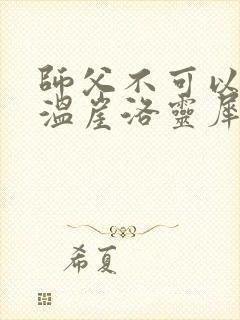 師父不可以
溫崖洛靈犀
希夏